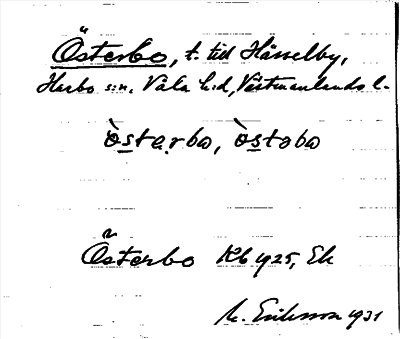 Österbo, t. till Hässelby,
Harbo s:n, Våla h:d, Västmanlands l.
òstərbω, òstəbω
Österbo Kb 1925, Ek
M. Eriksson 1931